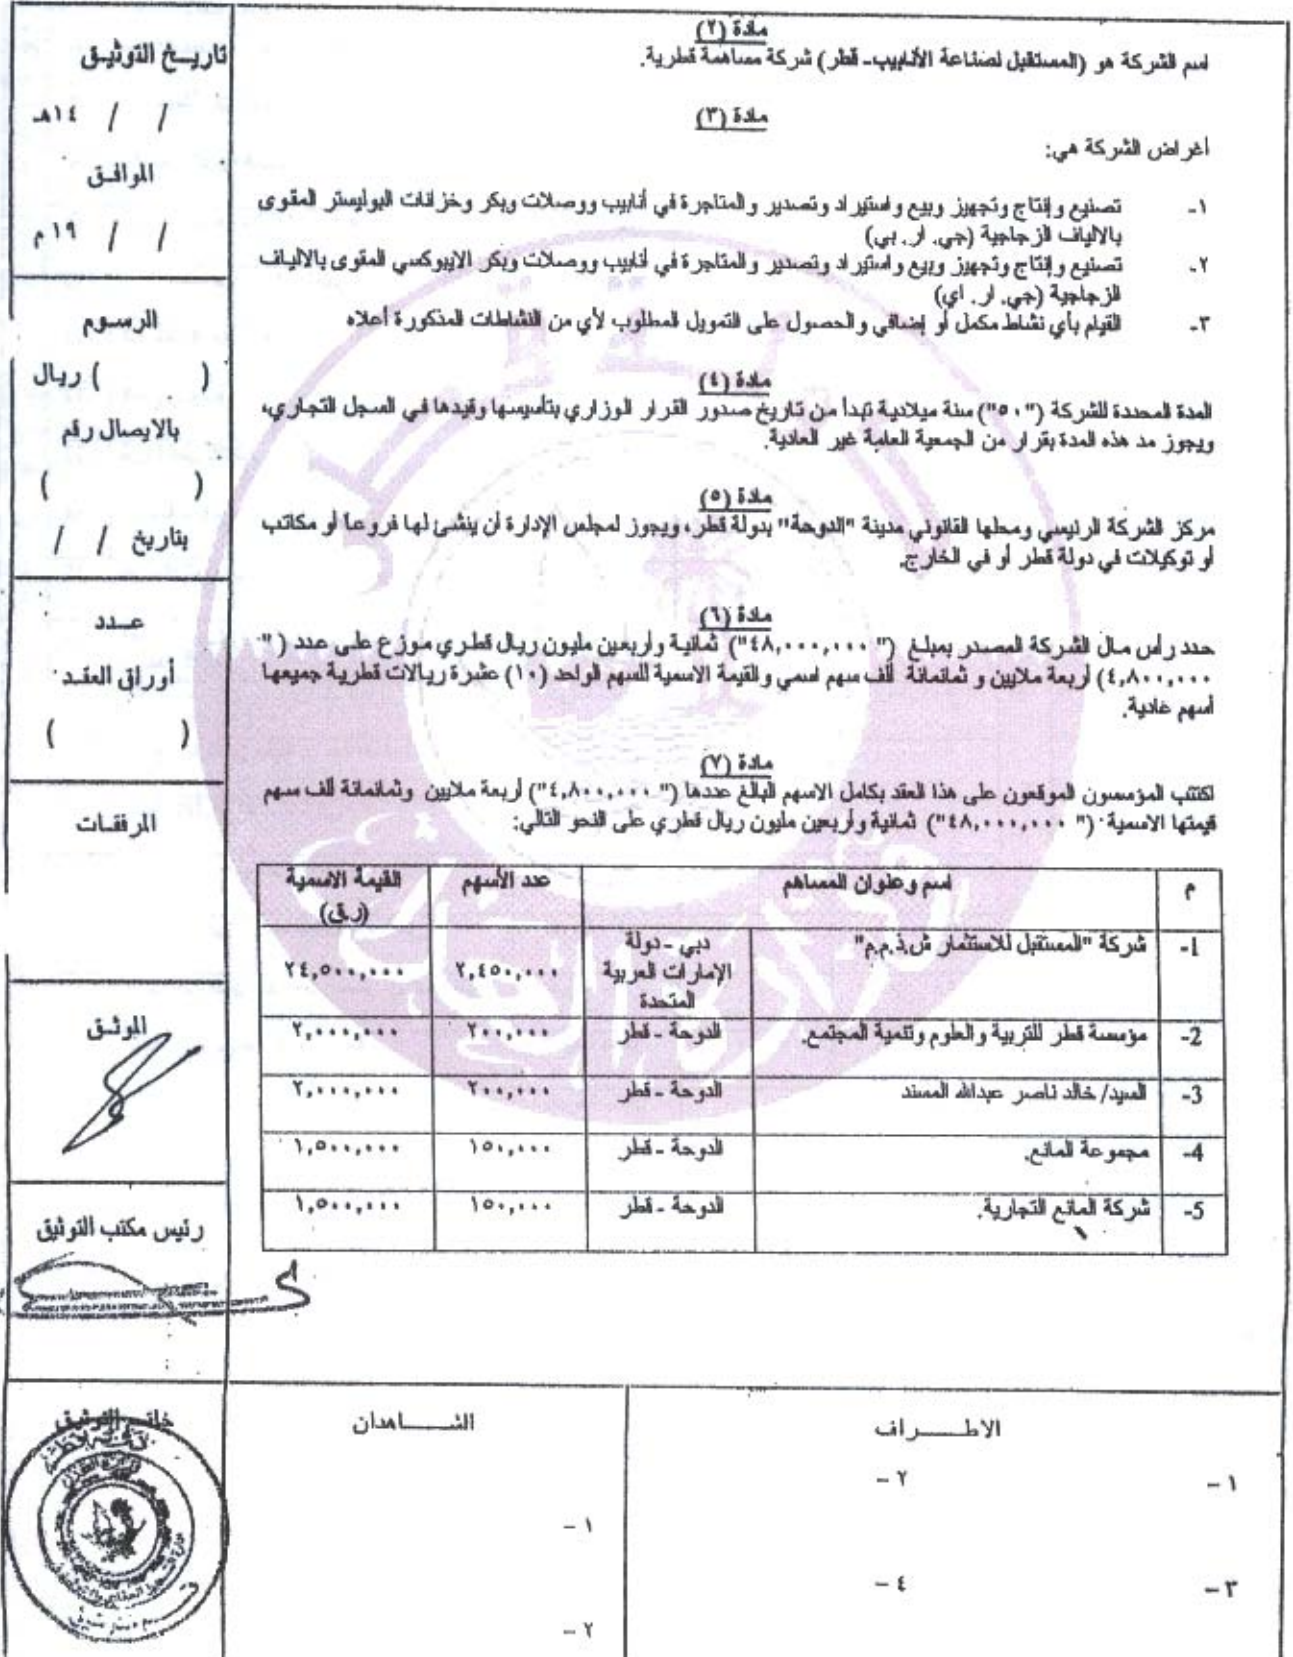 مادة (٢)
اسم الشركة هو (المستقبل لصناعة الأنابيب- قطر) شركة مساهمة قطرية.
مادة (٣)
أغراض الشركة هي:
١- تصنيع وإنتاج وتجهيز وبيع واستيراد وتصدير والمتاجرة في أنابيب ووصلات وبكر وخزانات البوليستر المقوى
بالالياف الزجاجية (جي. ار. بي)
٢- تصنيع وإنتاج وتجهيز وبيع واستيراد وتصدير والمتاجرة في أنابيب ووصلات وبكر الايبوكسي المقوى بالالياف
الزجاجية (جي. ار. اي)
٣- القيام بأي نشاط مكمل أو إضافي والحصول على التمويل المطلوب لأي من النشاطات المذكورة أعلاه
مادة (٤)
المدة المحددة للشركة ("٥٠") سنة ميلادية تبدأ من تاريخ صدور القرار الوزاري بتأسيسها وقيدها في السجل التجاري،
ويجوز مد هذه المدة بقرار من الجمعية العامة غير العادية.
مادة (٥)
مركز الشركة الرئيسي ومحلها القانوني مدينة "الدوحة" بدولة قطر، ويجوز لمجلس الإدارة أن ينشئ لها فروعاً أو مكاتب
أو توكيلات في دولة قطر أو في الخارج.
مادة (٦)
حدد رأس مال الشركة المصدر بمبلغ ("٤٨,٠٠٠,٠٠٠") ثمانية وأربعين مليون ريال قطري موزع على عدد ("
٤,٨٠٠,٠٠٠) أربعة ملايين و ثمانمائة ألف سهم اسمي والقيمة الاسمية للسهم الواحد (١٠) عشرة ريالات قطرية جميعها
أسهم عادية.
مادة (٧)
اكتتب المؤسسون الموقعون على هذا العقد بكامل الاسهم البالغ عددها ("٤,٨٠٠,٠٠٠") أربعة ملايين وثمانمائة ألف سهم
قيمتها الاسمية ("٤٨,٠٠٠,٠٠٠") ثمانية وأربعين مليون ريال قطري على النحو التالي:
م اسم وعنوان المساهم عدد الأسهم القيمة الاسمية (ر.ق)
1- شركة "المستقبل للاستثمار ش.ذ.م.م" دبي - دولة الإمارات العربية المتحدة ٢,٤٥٠,٠٠٠ ٢٤,٥٠٠,٠٠٠
2- مؤسسة قطر للتربية والعلوم وتنمية المجتمع. الدوحة - قطر ٢٠٠,٠٠٠ ٢,٠٠٠,٠٠٠
3- السيد/ خالد ناصر عبدالله المسند الدوحة - قطر ٢٠٠,٠٠٠ ٢,٠٠٠,٠٠٠
4- مجموعة المانع. الدوحة - قطر ١٥٠,٠٠٠ ١,٥٠٠,٠٠٠
5- شركة المانع التجارية. الدوحة - قطر ١٥٠,٠٠٠ ١,٥٠٠,٠٠٠
تاريــخ التوثيـق
/ / ١٤هـ
الموافـق
/ / ١٩ م
الرسـوم
( ) ريال
بالايصال رقم
( )
بتاريخ / /
عــدد
أوراق العقـد
( )
المرفقـات
الموثـق
رئيس مكتب التوثيق
خاتـم التوثيق
الاطـــــراف
١ –
٢ –
٣ –
٤ –
الشــــــاهدان
١ –
٢ –